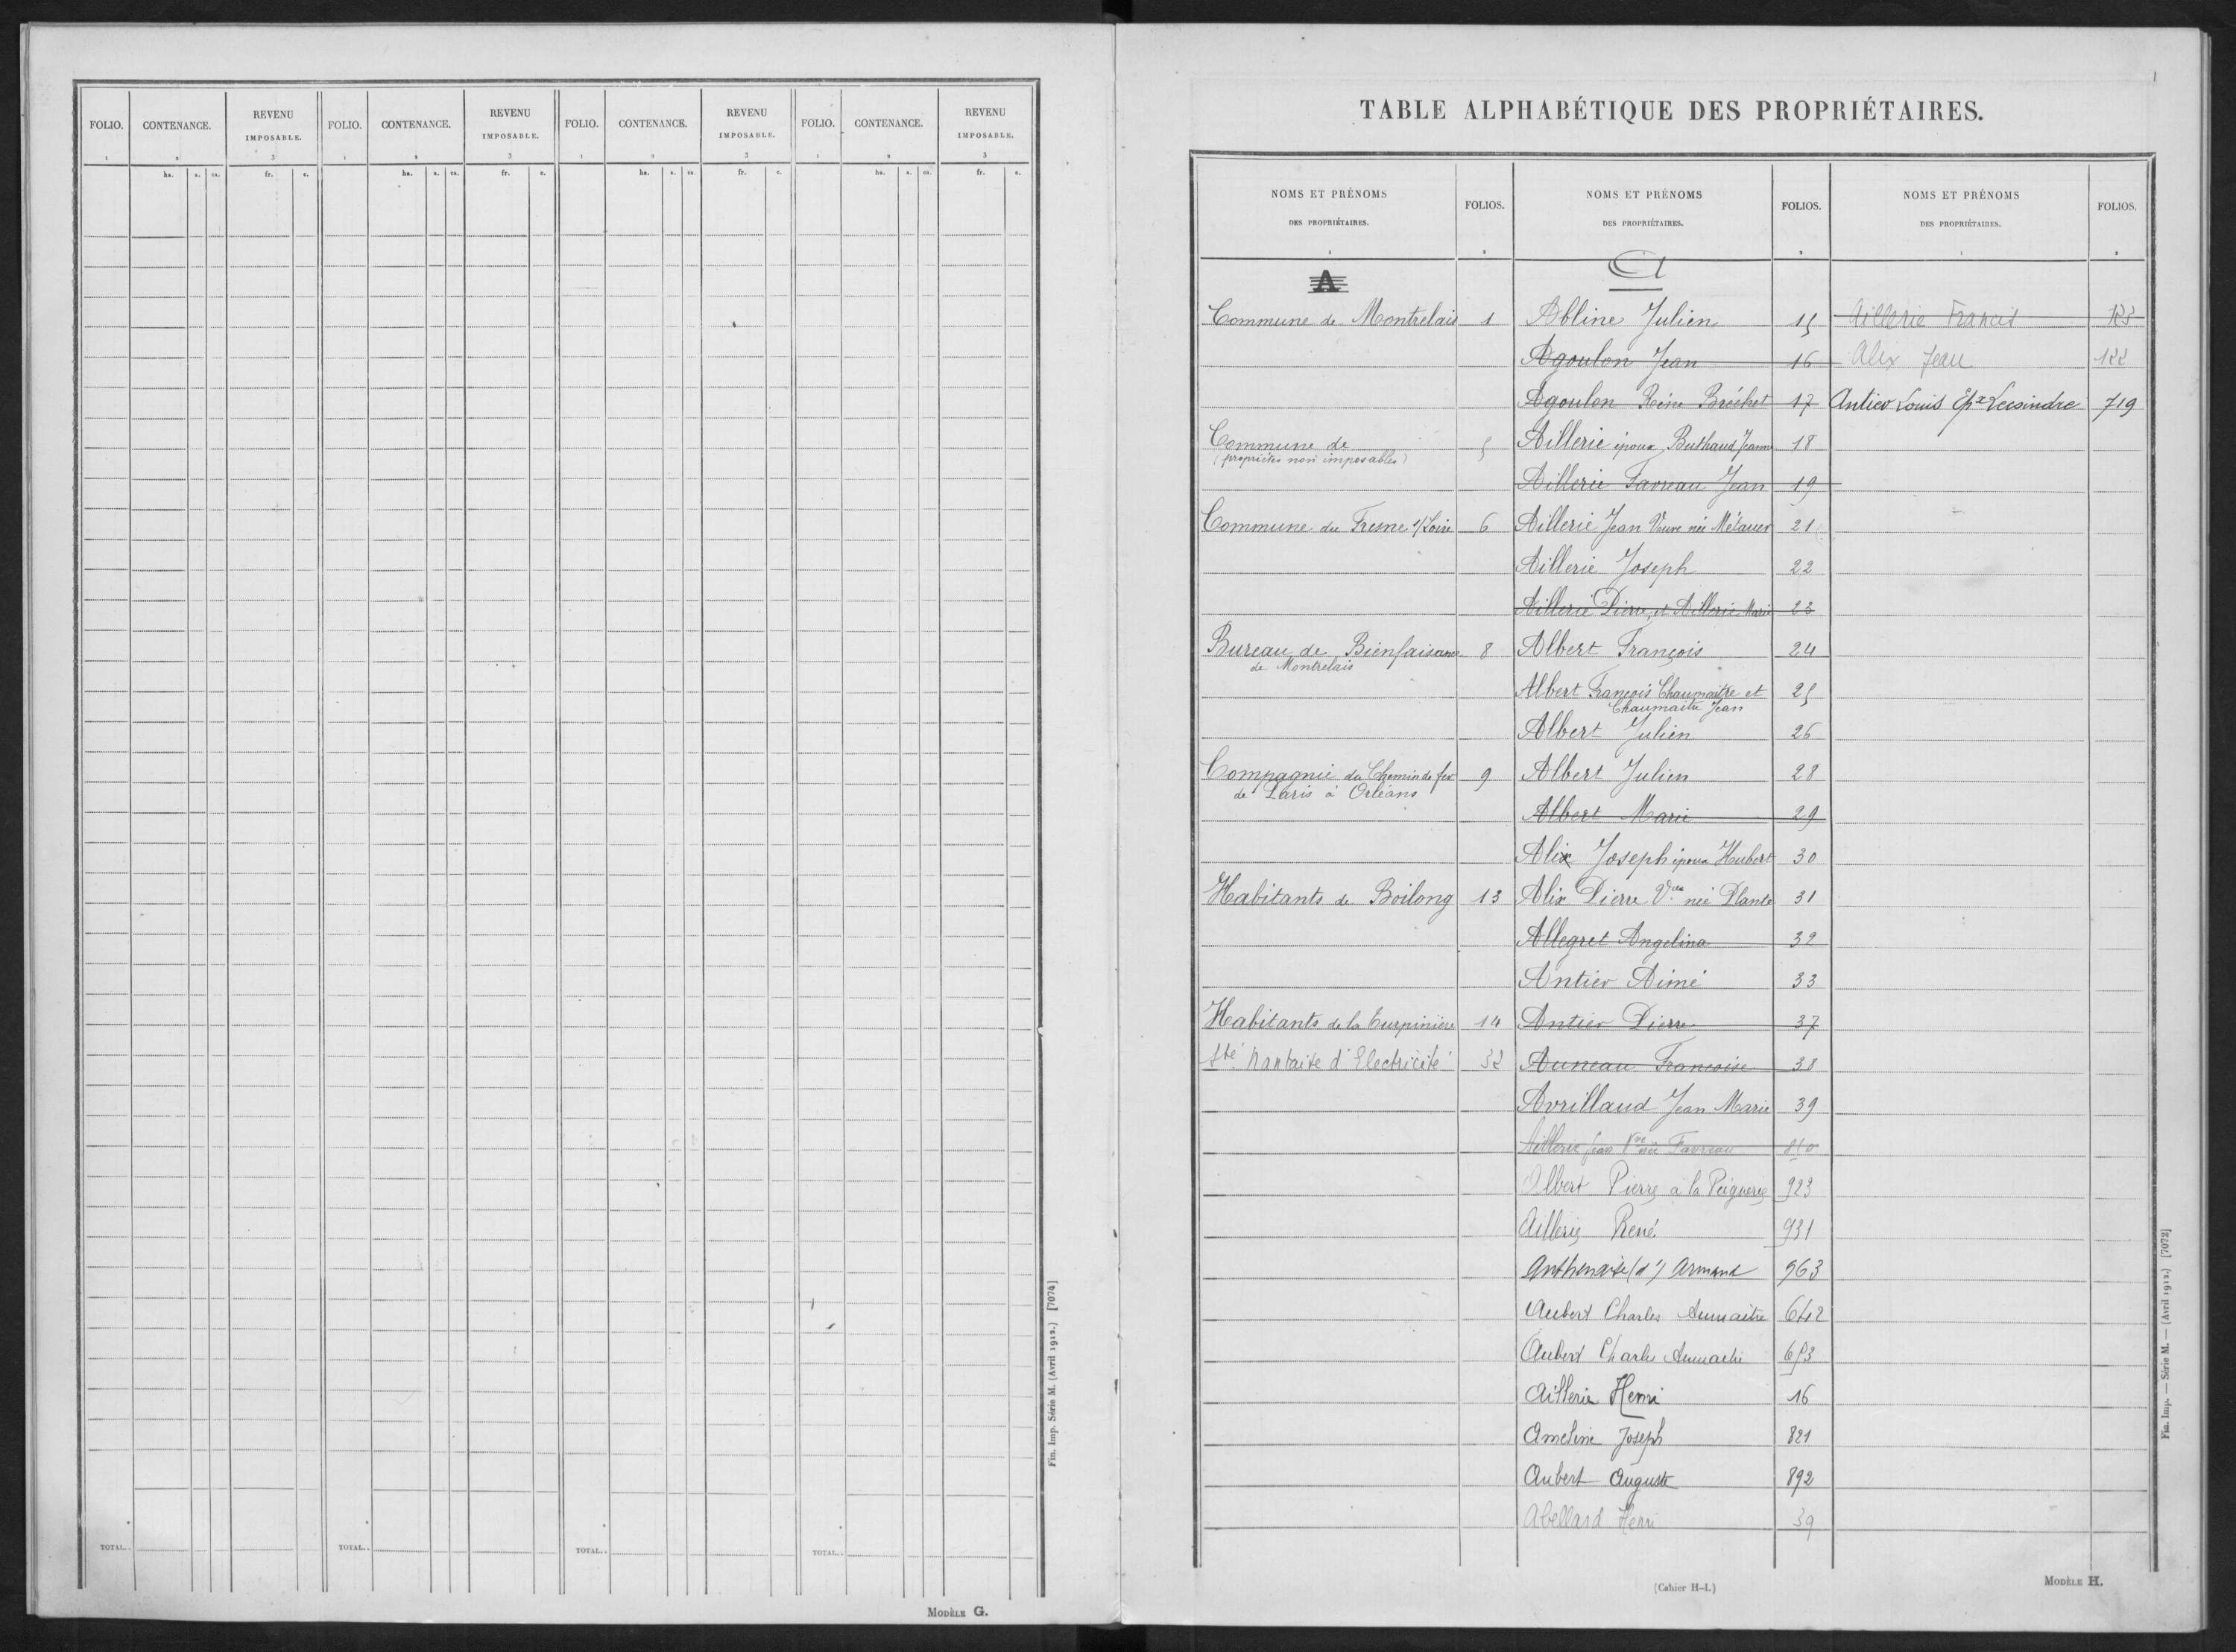 FOLIO. CONTENANCE. REVENU IMPOSABLE. FOLIO. CONTENANCE. REVENU IMPOSABLE. FOLIO. CONTENANCE. REVENU IMPOSABLE. FOLIO. CONTENANCE. REVENU IMPOSABLE.
1 2 3 1 2 3 1 2 3 1 2 3
ha. a. ca. fr. c. ha. a. ca. fr. c. ha. a. ca. fr. c. ha. a. ca. fr. c.
TOTAL.. TOTAL.. TOTAL.. TOTAL..
Fin. Imp. Série M. (Avril 1912.) [7074]
MODÈLE G.
1
TABLE ALPHABÉTIQUE DES PROPRIÉTAIRES.
NOMS ET PRÉNOMS DES PROPRIÉTAIRES. FOLIOS.
A
Commune de Montrelais 1
Commune de 5
(propriétés non imposables)
Commune du Fresne s/Loire 6
Bureau de Bienfaisance 8
de Montrelais
Compagnie du Chemin de fer 9
de Paris à Orléans
Habitants de Boilong 13
Habitants de la Turpinière 14
Sté Nantaise d'Electricité 32
NOMS ET PRÉNOMS DES PROPRIÉTAIRES. FOLIOS.
A
Abline Julien 15
Agoulon Jean 16
Agoulon Réné Bréchet 17
Aillerie époux Buthaud Jeanne 18
Aillerie Favreau Jean 19
Aillerie Jean Veuve née Métayer 21
Aillerie Joseph 22
Aillerie Pierre et Aillerie Marie 23
Albert François 24
Albert François Chaumaitre et 25
Chaumaitre Jean
Albert Julien 26
Albert Julien 28
Albert Marie 29
Alix Joseph époux Hubert 30
Alix Pierre Vve née Plante 31
Allegret Angelina 32
Antier Aimé 33
Antier Pierre 37
Auneau Françoise 38
Avrillaud Jean Marie 39
Aillerie Jean Vve née Favreau 810
Albert Pierre à la Peignerie 923
Aillerie René 931
Anthenaise (d') Armand 963
Aubert Charles Aumaitre 642
Aubert Charles Aumaitre 653
Aillerie Henri 16
Ameline Joseph 821
Aubert Auguste 892
Abellard Henri 39
NOMS ET PRÉNOMS DES PROPRIÉTAIRES. FOLIOS.
Aillerie Francis 123
Alix Jean 122
Antier Louis Epx Lecindre 719
Fin. Imp. — Série M. — (Avril 1912.) [7072]
(Cahier H-I.)
MODÈLE H.